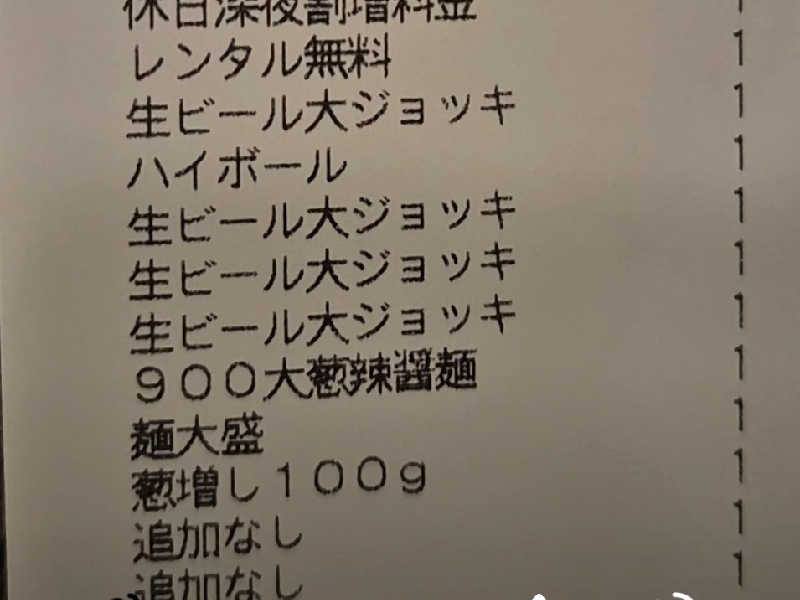 休日深夜割増料金 1
レンタル無料 1
生ビール大ジョッキ 1
ハイボール 1
生ビール大ジョッキ 1
生ビール大ジョッキ 1
生ビール大ジョッキ 1
900大葱辣醤麺 1
麺大盛 1
葱増し100g 1
追加なし 1
追加なし 1